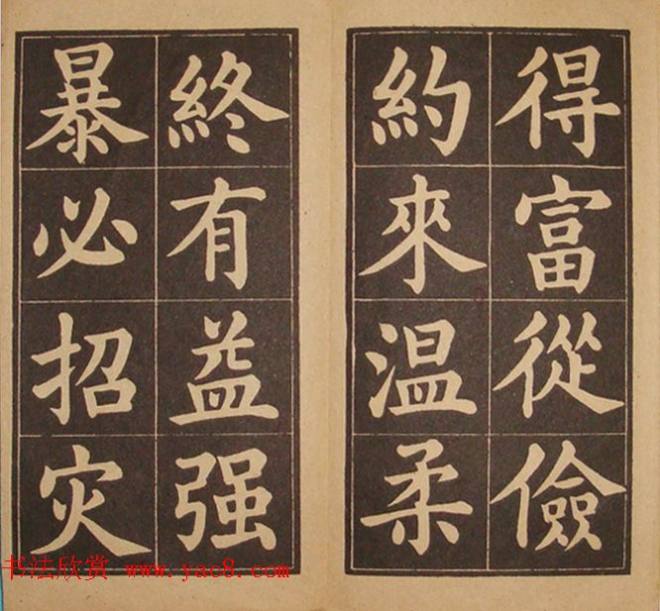 得富從儉
約來温柔
終有益强
暴必招灾
书法欣赏 www.yac8.com